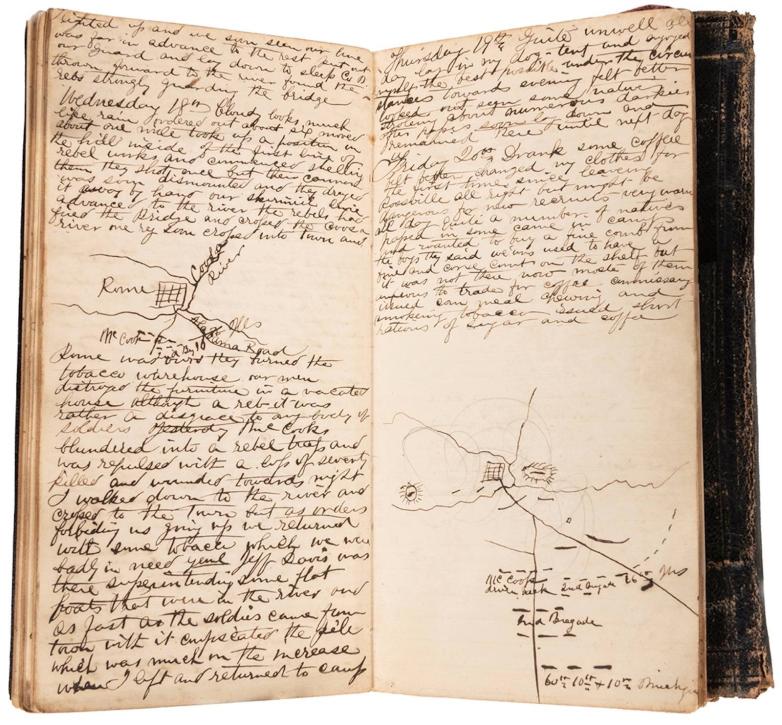 lighted up and we soon seen our line
was far in advance to the rest put out
our guard and lay down to sleep Co B
thrown forward to the river found the
rebs strongly guarding the bridge
Wednesday 18th Cloudy looks much
like rain ordered out about six moved
about one mile took up a position in
the hill inside of the first line of
rebel works and commenced shelling
them they shot once but their cannon
was soon dismounted and they dragged
it away
advanced to the river the rebels had
fired the Bridge and crossed the Coosa
river one regt soon crossed into town and
Coosa river
Rome
Ills
Alabama Road
Mc Cook
2nd Br
Rome was ours they burned the
tobacco warehouse our men
distroyed the furniture in a vacated
house although a reb it was
rather a disgrace to any body of
soldiers yesterday Mc Cooks
blundered into a rebel trap and
was repulsed with a loss of seventy
killed and wounded towards night
I walked down to the river and
crossed to the town but as orders
forbiding us going up we returned
with some tobacco which we were
badly in need Genl Jeff Davis was
there superintending some flat
boats that were in the river and
as fast as the soldies came from
town with it confiscated the pile
which was much on the increase
when I left and returned to camp
Thursday 19th Quite unwell all
day lay in my dog-tent and enjoyed
myself the best possible under the circum
stances towards evening felt better
looked out seen some native
strolling about numerous darkies
after supper soon lay down and
remained there until next day
Friday 20th Drank some coffee
felt better changed my clothes for
the first time since leaving
Rossville all right but might be
dangerous to new recruits very warm
all day quite a number of natives
passed in some came in camp
some wanted to buy a fine comb from
the boys they said we uns used to have a
one and comb on the shelf but
it was not there now moste of them
anxious to trade for coffee commissary
issued corn meal chewing and
smoking tobacco issued short
rations of sugar and coffee
Mc Cook
2nd Brigade
16th Ills
2nd Bregade
60th 10th + 10th Michigan